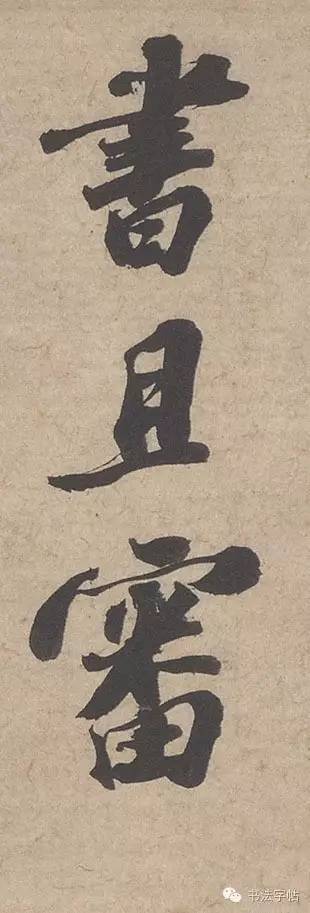 書且審
书法字帖